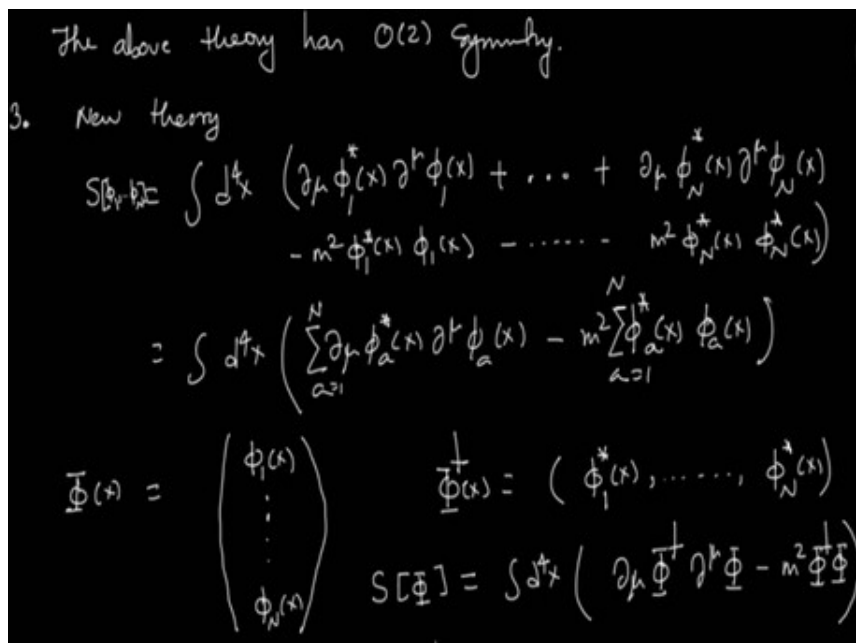 The above theory has O(2) Symmetry.
3. New theory
S[ϕ₁…ϕ_N] = ∫ d⁴x (∂_μ ϕ₁*(x) ∂^μ ϕ₁(x) + ... + ∂_μ ϕ_N*(x) ∂^μ ϕ_N(x)
- m² ϕ₁*(x) ϕ₁(x) - ...... - m² ϕ_N*(x) ϕ_N*(x))
= ∫ d⁴x (∑_{a=1}^{N} ∂_μ ϕ_a*(x) ∂^μ ϕ_a(x) - m² ∑_{a=1}^{N} ϕ_a*(x) ϕ_a(x))
Φ(x) = (ϕ₁(x) ⋮ ϕ_N(x)) Φ†(x) = (ϕ₁*(x), ......, ϕ_N*(x))
S[Φ] = ∫ d⁴x (∂_μ Φ† ∂^μ Φ - m² Φ†Φ)